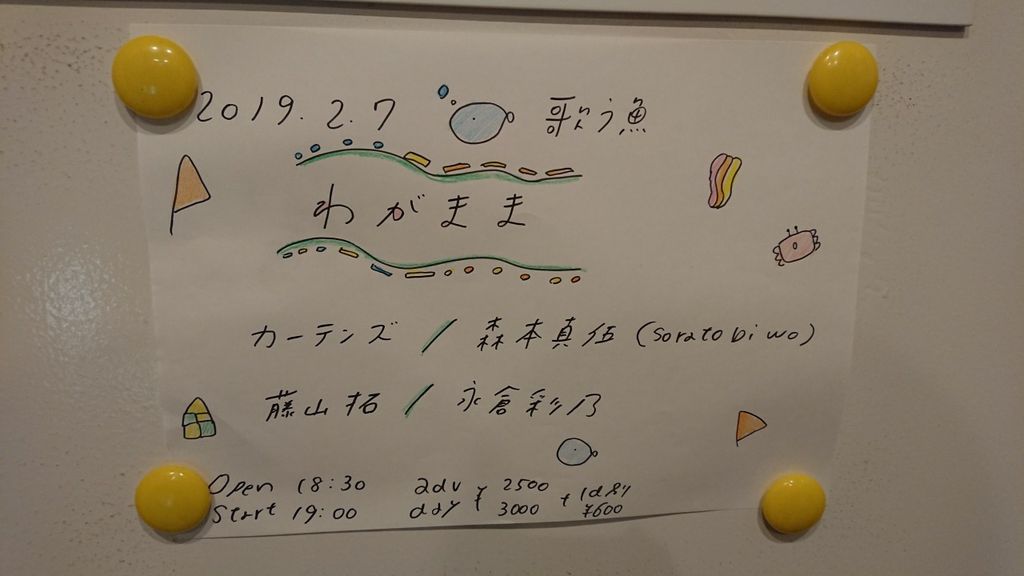 2019.2.7 歌う魚
わがまま
カーテンズ / 森本真伍 (Soratobiwo)
藤山拓 / 永倉彩乃
Open 18:30 adv ¥ 2500 + 1d別
Start 19:00 day 3000 ¥600